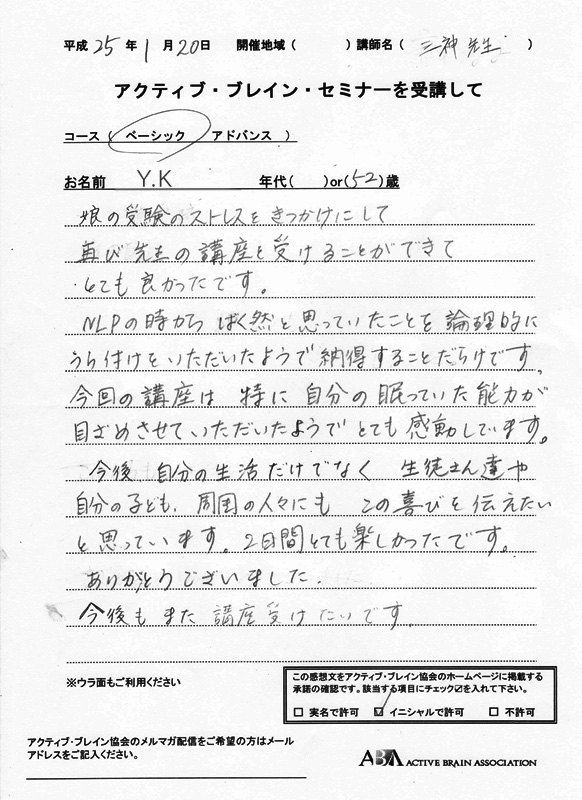 平成 25 年 1 月 20日 開催地域( ) 講師名( 三神 先生 )
アクティブ・ブレイン・セミナーを受講して
コース( ベーシック アドバンス )
お名前 Y.K 年代( )or(52)歳
娘の受験のストレスをきっかけにして
再び先生の講座を受けることができて
とても良かったです。
NLPの時から ばく然と思っていたことを論理的に
うら付けをいただいたようで納得することだらけです。
今回の講座は 特に 自分の眠っていた能力が
目ざめさせていただいたようでとても感動しています。
今後 自分の生活だけでなく 生徒さん達や
自分の子ども、周囲の人々にも この喜びを伝えたい
と思っています。2日間とても楽しかったです。
ありがとうございました.
今後もまた講座受けたいです。
※ウラ面もご利用ください
この感想文をアクティブ・ブレイン協会のホームページに掲載する
承諾の確認です。該当する項目にチェック☑を入れて下さい。
□ 実名で許可 ☑ イニシャルで許可 □ 不許可
アクティブ・ブレイン協会のメルマガ配信をご希望の方はメール
アドレスをご記入ください。
ABA ACTIVE BRAIN ASSOCIATION